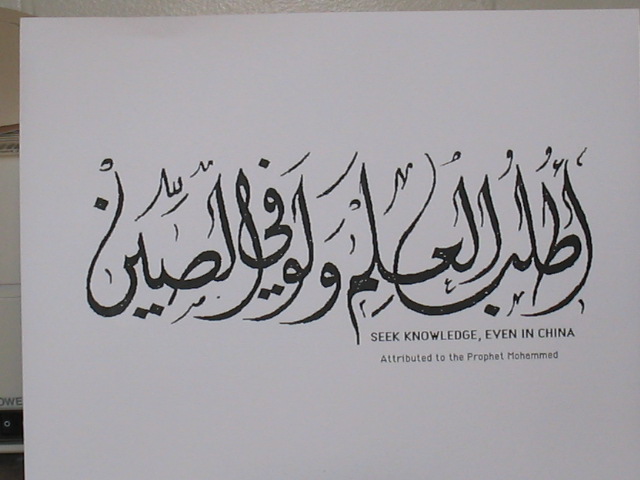 أطلب العلم ولو في الصين
SEEK KNOWLEDGE, EVEN IN CHINA
Attributed to the Prophet Mohammed
OWE